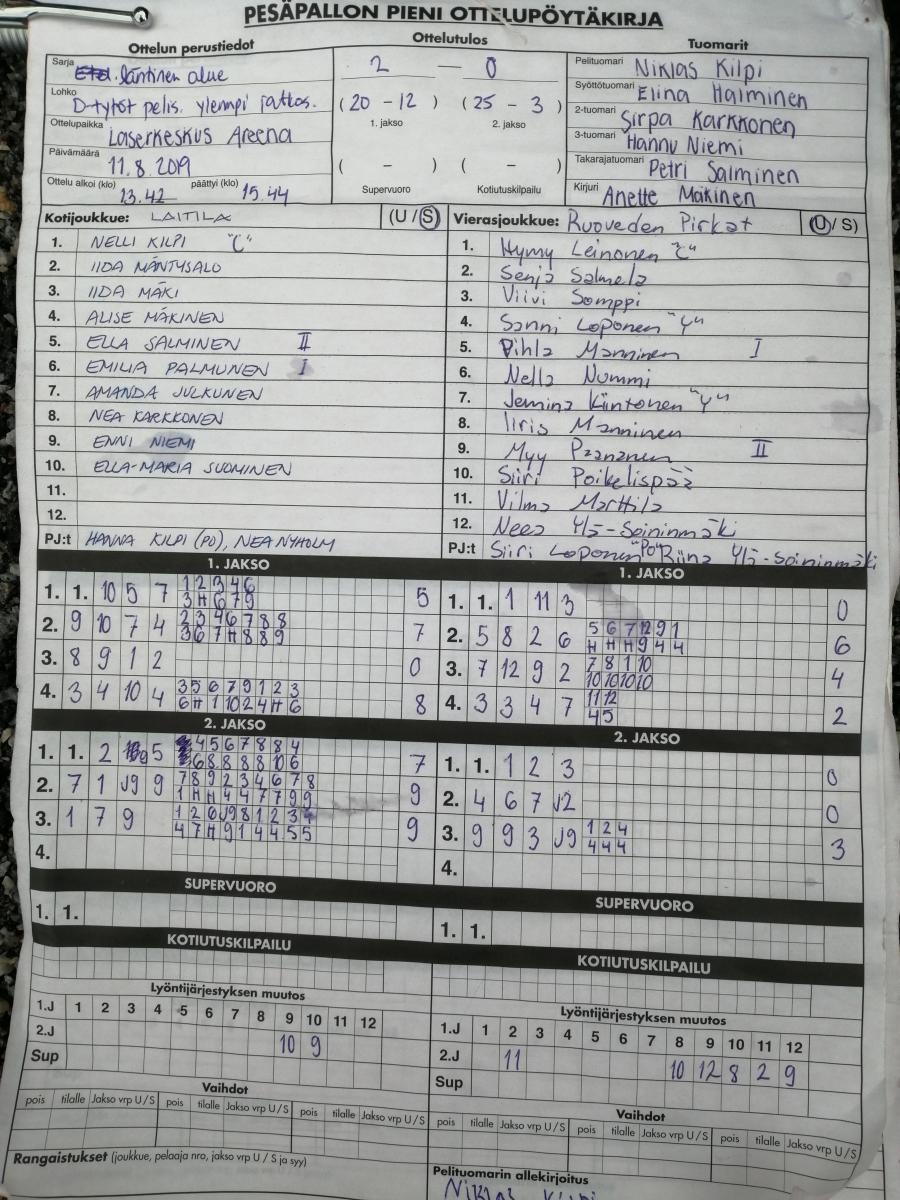 PESÄPALLON PIENI OTTELUPÖYTÄKIRJA
Ottelun perustiedot
Sarja läntinen alue
Lohko D-tytöt pelis. ylempi jatkos.
Ottelupaikka Laserkeskus Areena
Päivämäärä 11.8.2019
Ottelu alkoi (klo) 13.42 päättyi (klo) 15.44
Ottelutulos
2 — 0
( 20 - 12 ) ( 25 - 3 )
1. jakso 2. jakso
( - ) ( - )
Supervuoro Kotiutuskilpailu
Tuomarit
Pelituomari Niklas Kilpi
Syöttötuomari Elina Halminen
2-tuomari Sirpa Karkkonen
3-tuomari Hannu Niemi
Takarajatuomari Petri Salminen
Kirjuri Anette Mäkinen
Kotijoukkue: LAITILA (U / S)
1. NELLI KILPI "C"
2. IIDA MÄNTYSALO
3. IIDA MÄKI
4. ALISE MÄKINEN
5. ELLA SALMINEN II
6. EMILIA PALMUNEN I
7. AMANDA JULKUNEN
8. NEA KARKKONEN
9. ENNI NIEMI
10. ELLA-MARIA SUOMINEN
11.
12.
PJ:t HANNA KILPI (PO), NEA NYHOLM
Vierasjoukkue: Ruoveden Pirkat (U / S)
1. Hymy Leinonen "C"
2. Senja Salmela
3. Viivi Somppi
4. Sanni Loponen "Y"
5. Pihla Manninen I
6. Nella Nummi
7. Jemina Kiintonen "Y"
8. Iiris Manninen
9. Myy Paananen II
10. Siiri Poikelispää
11. Vilma Marttila
12. Neea Ylä-Soininmäki
PJ:t Siiri Loponen "PO" Riina Ylä-Soininmäki
1. JAKSO
1. 1. 10 5 7 1 2 3 4 6 5
3 H 6 7 9
2. 9 10 7 4 2 3 4 6 7 8 8 7
3 6 7 H 8 8 9
3. 8 9 1 2 0
4. 3 4 10 4 3 5 6 7 9 1 2 3 8
6 H 1 10 2 4 H 6
2. JAKSO
1. 1. 2 5 4 5 6 7 8 8 4 7
6 8 8 8 8 10 6
2. 7 1 J9 9 7 8 9 2 3 4 6 7 8 9
1 H H 4 4 7 7 9 9
3. 1 7 9 1 2 6 J9 8 1 2 3 4 9
4 7 H 9 1 4 4 5 5
4.
SUPERVUORO
1. 1.
KOTIUTUSKILPAILU
Lyöntijärjestyksen muutos
1.J 1 2 3 4 5 6 7 8 9 10 11 12
2.J 10 9
Sup
Vaihdot
pois tilalle Jakso vrp U / S pois tilalle Jakso vrp U / S pois tilalle Jakso vrp U / S
Rangaistukset (joukkue, pelaaja nro, jakso vrp U / S ja syy)
1. JAKSO
1. 1. 1 11 3 0
2. 5 8 2 6 5 6 7 12 9 1 6
H H H 9 4 4
3. 7 12 9 2 7 8 1 10 4
10 10 10 10
4. 3 3 4 7 11 12 2
4 5
2. JAKSO
1. 1. 1 2 3 0
2. 4 6 7 J2 0
3. 9 9 3 J9 1 2 4 3
4 4 4
4.
SUPERVUORO
1. 1.
KOTIUTUSKILPAILU
Lyöntijärjestyksen muutos
1.J 1 2 3 4 5 6 7 8 9 10 11 12
2.J 11 10 12 8 2 9
Sup
Vaihdot
pois tilalle Jakso vrp U / S pois tilalle Jakso vrp U / S pois tilalle Jakso vrp U / S
Pelituomarin allekirjoitus
Niklas Kilpi